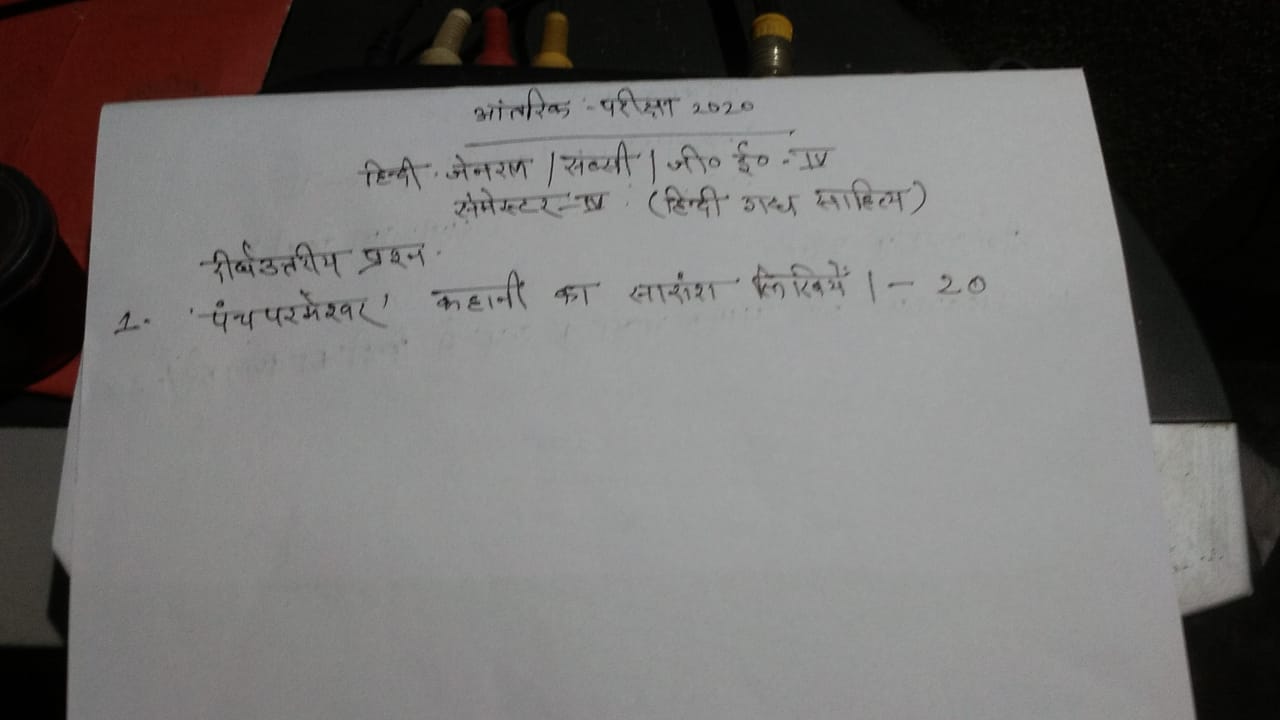 आंतरिक - परीक्षा 2020
हिन्दी जेनरल / सब्सी / जी० ई० - IV
सेमेस्टर - IV (हिन्दी गद्य साहित्य)
दीर्घउत्तरीय प्रश्न.
1. 'पंचपरमेश्वर' कहानी का सारांश लिखियें। - 20